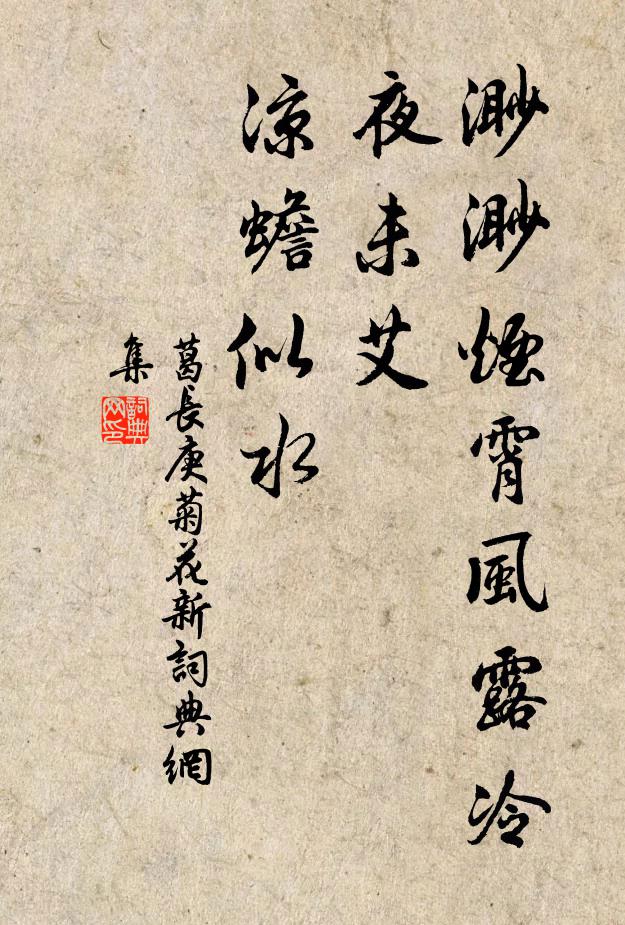 渺渺煙霄風露冷
夜未艾
涼蟾似水
葛長庚菊花新詞典網
集
詞典網印